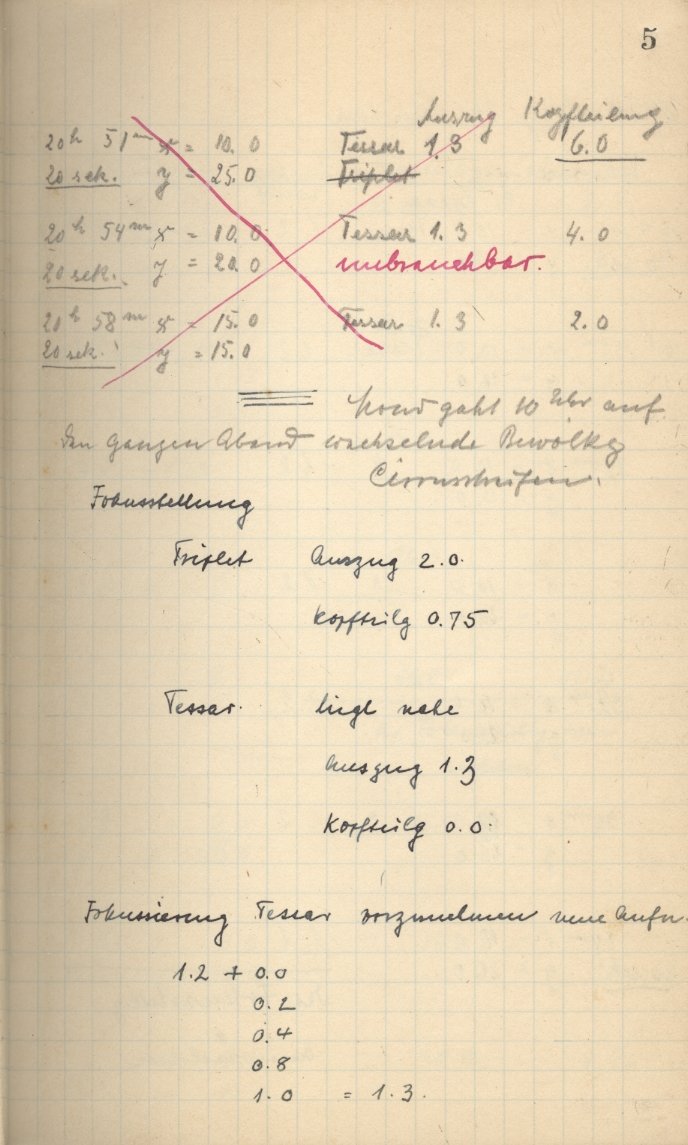 5
Auszug Kopfteilung
20h 51m x = 10.0 Tessar 1.3 6.0
20 sek. y = 25.0 Triplet
20h 54m x = 10.0 Tessar 1.3 4.0
20 sek. y = 20.0 unbrauchbar.
20h 58m x = 15.0 Tessar 1.3 2.0
20 sek. y = 15.0
Mond geht 10 Uhr auf
den ganzen Abend wechselnde Bewölkg
Cirrusstreifen.
Fokusstellung
Triplet Auszug 2.0.
Kopfteilg 0.75
Tessar. liegt nahe
Auszug 1.3
Kopfteilg 0.0.
Fokussierung Tessar vorzunehmen neue Aufn.
1.2 + 0.0
0.2
0.4
0.8
1.0 = 1.3.